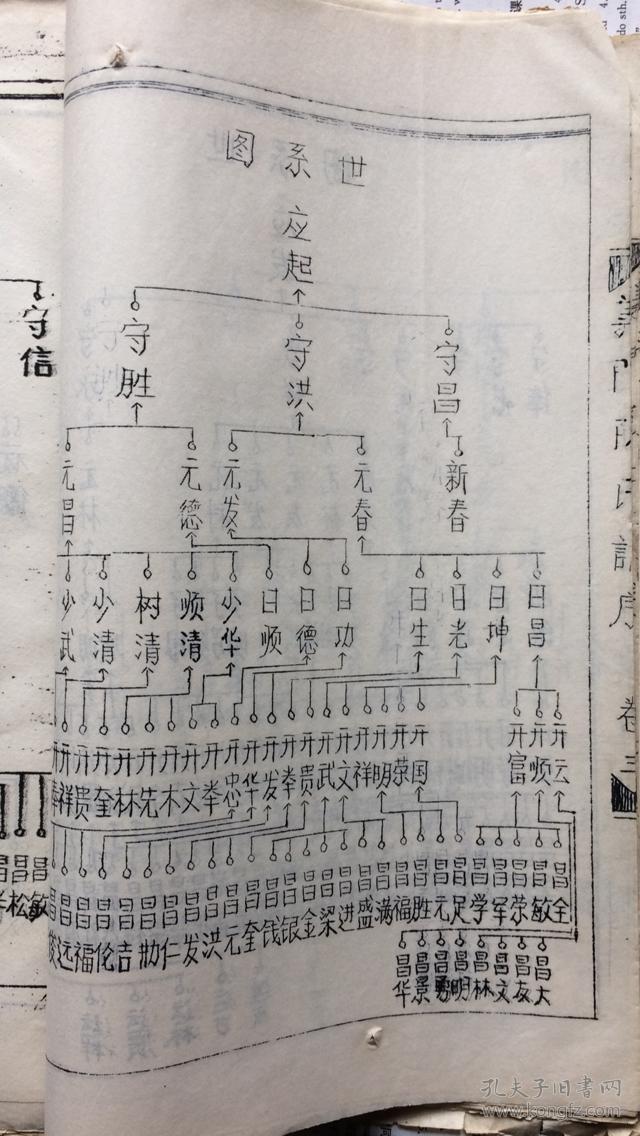 世系图
应起
守昌
守洪
守胜
新春
元春
元发
元德
元昌
日昌
日坤
日光
日生
日功
日德
日顺
少华
顺清
树清
少清
少武
开云
开顺
开富
开国
开荣
开明
开祥
开文
开武
开贵
开拳
开发
开华
开忠
开拳
开文
开木
开先
开林
开奎
开贵
开祥
昌全
昌敏
昌荣
昌军
昌学
昌足
昌元
昌胜
昌福
昌满
昌盛
昌进
昌梁
昌金
昌银
昌钱
昌奎
昌元
昌洪
昌发
昌仁
昌吉
昌伦
昌福
昌远
昌大
昌友
昌文
昌林
昌明
昌勇
昌景
昌华
守信
昌敏
昌松
卷三
孔夫子旧书网
www.kongfz.com